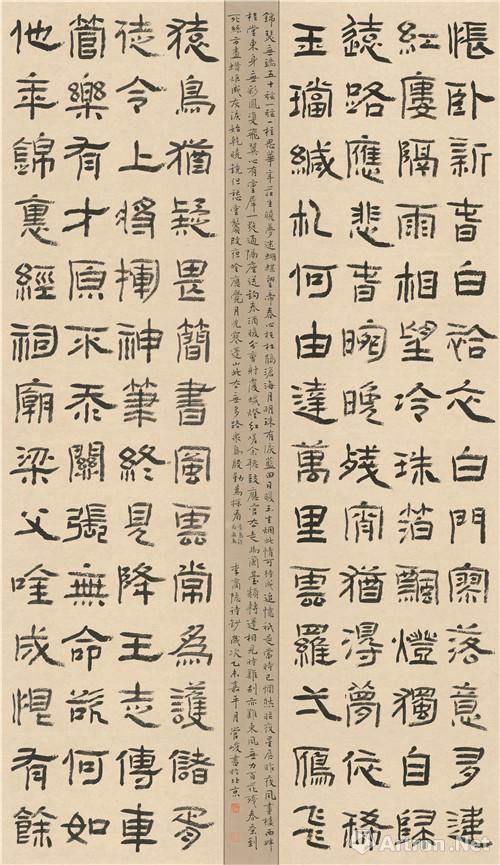 悵卧新春白袷衣白門寥落意多違
紅樓隔雨相望冷珠箔飄燈獨自歸
遠路應悲春晼晚殘宵猶得夢依稀
玉璫緘札何由達萬里雲羅弌鴈飛
錦瑟無端五十絃一絃一柱思華年莊生曉夢迷蝴蝶望帝春心托杜鵑滄海月明珠有淚藍田日暖玉生烟此情可待成追憶祇是當時已惘然昨夜星辰昨夜風畫樓西畔
桂堂東身無彩鳳雙飛翼心有靈犀一點通隔座送鉤春酒暖分曹射覆蠟燈紅嗟余聽鼓應官去走馬蘭臺類轉蓬相見時難別亦難東風無力百花殘春蠶到
死絲方盡蠟炬成灰淚始乾曉鏡但愁雲鬢改夜吟應覺月光寒蓬山此去無多路青鳥殷勤為探看 李商隱詩鈔歲次乙未嘉平月管峻書於北京
猿鳥猶疑畏簡書風雲常為護儲胥
徒令上將揮神筆終見降王走傳車
管樂有才原不忝關張無命欲何如
他年錦裏經祠廟梁父唫成恨有餘
Artron.Net